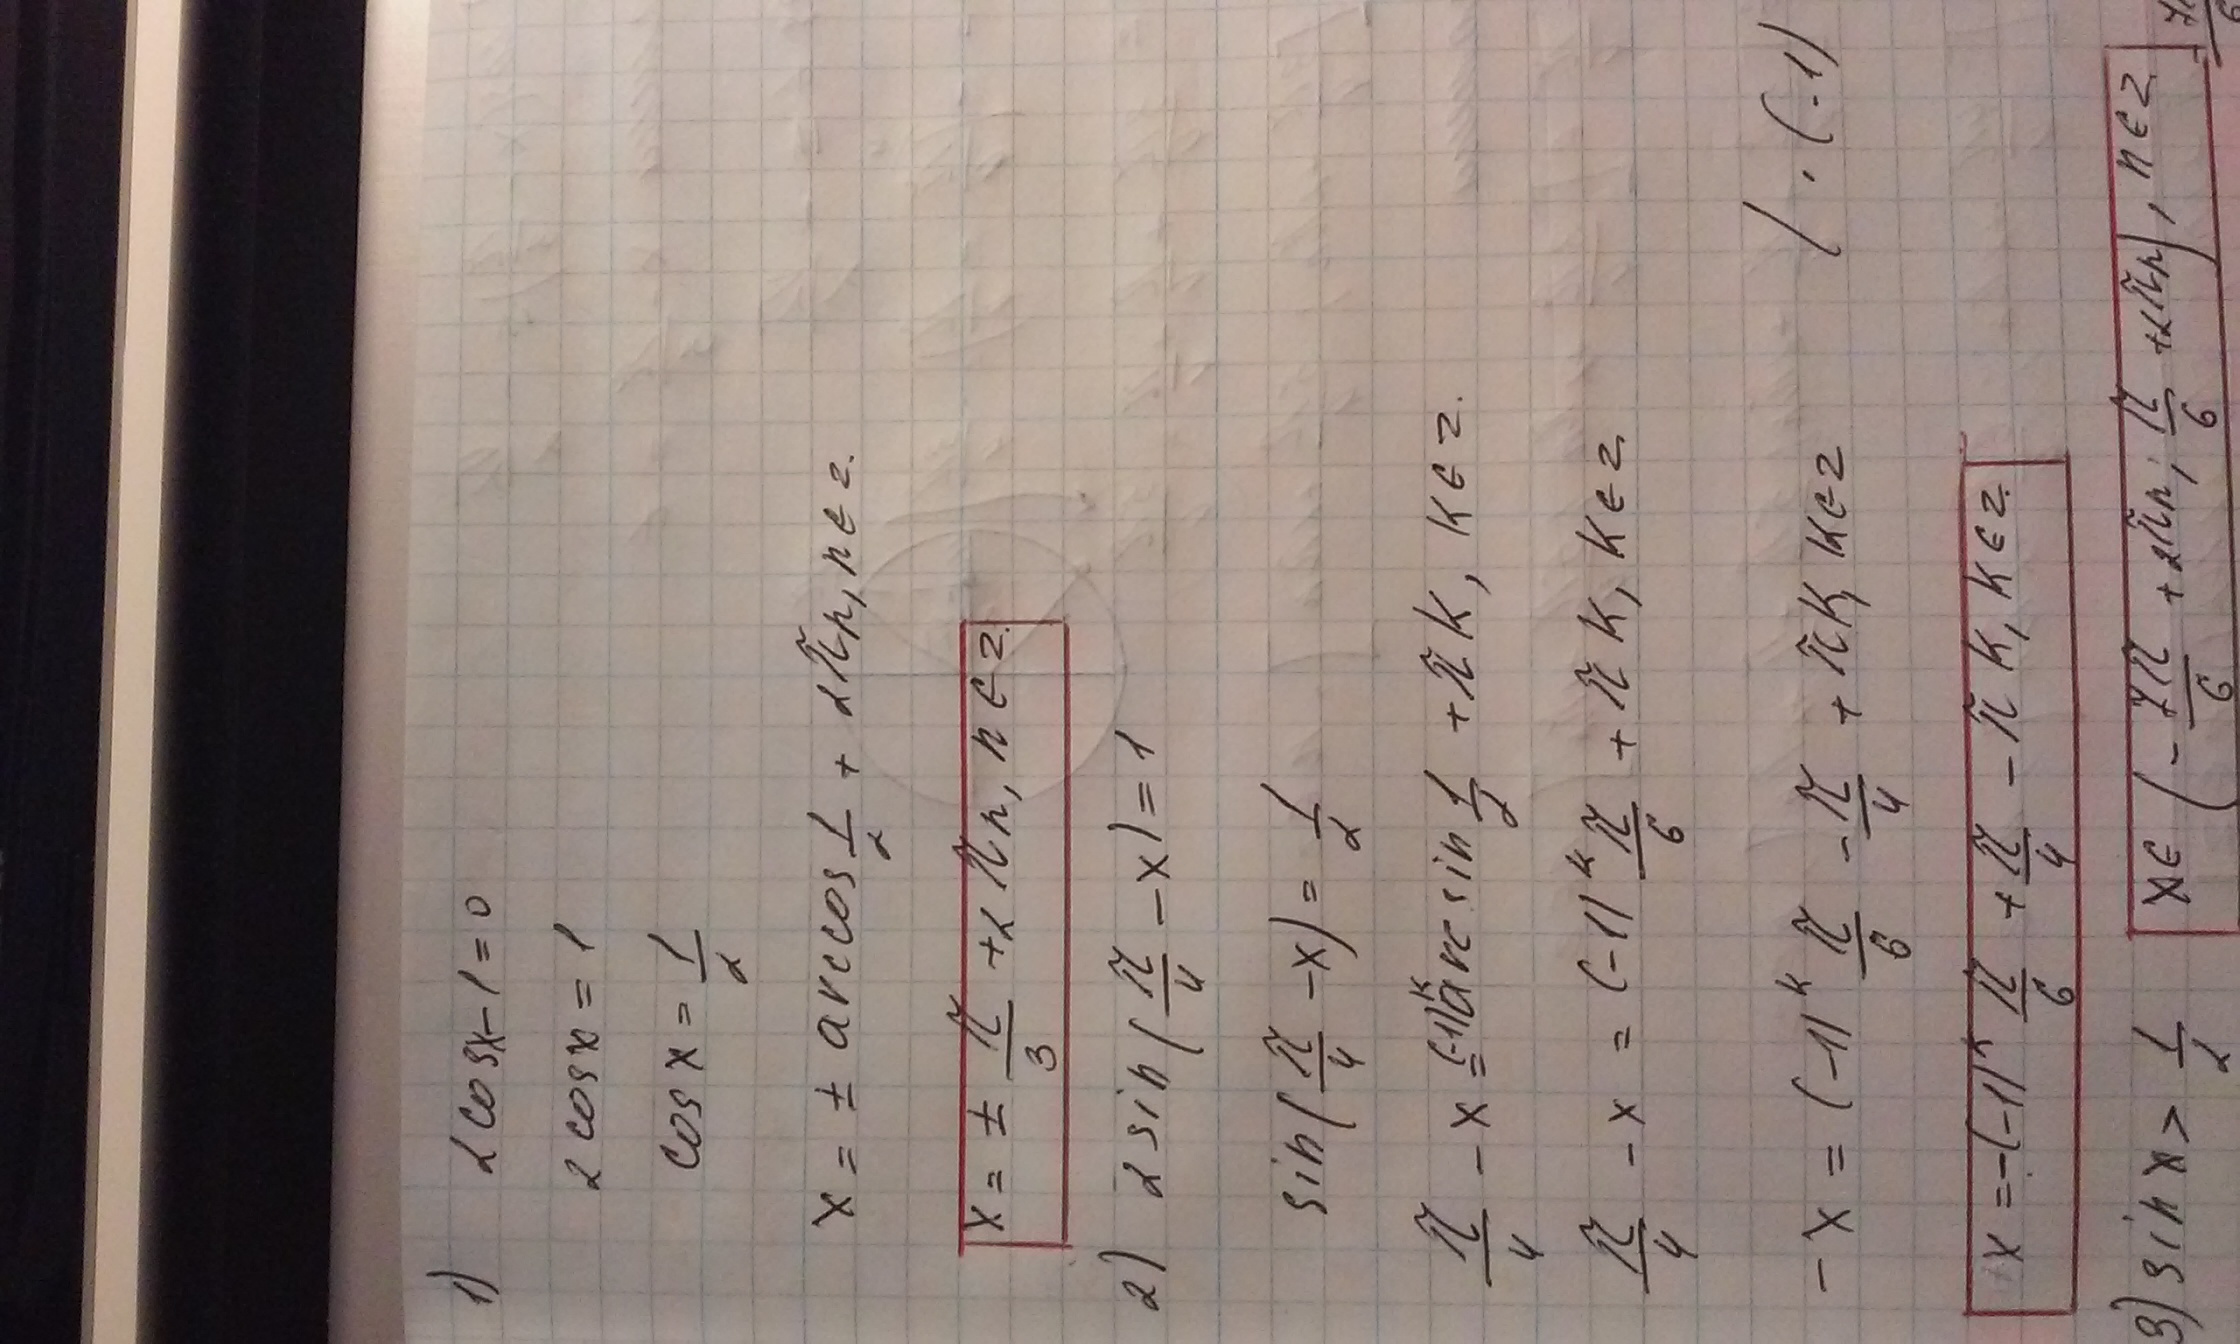 1) 2cosx-1=0
2cosx=1
cosx=1/2
x=± arccos 1/2 + 2πn, n∈z.
x=± π/3 +2πn, n∈z.
2) 2 sin(π/4 -x)=1
sin(π/4 -x)=1/2
π/4 -x=(-1)^k arcsin 1/2 +πk, k∈z.
π/4 -x=(-1)^k π/6 +πk, k∈z
-x=(-1)^k π/6 - π/4 +πk, k∈z /·(-1)
x=-(-1)^k π/6 + π/4 -πk, k∈z.
3) sin x> 1/2 x∈(- 7π/6 +2πn; π/6 +2πn), n∈z